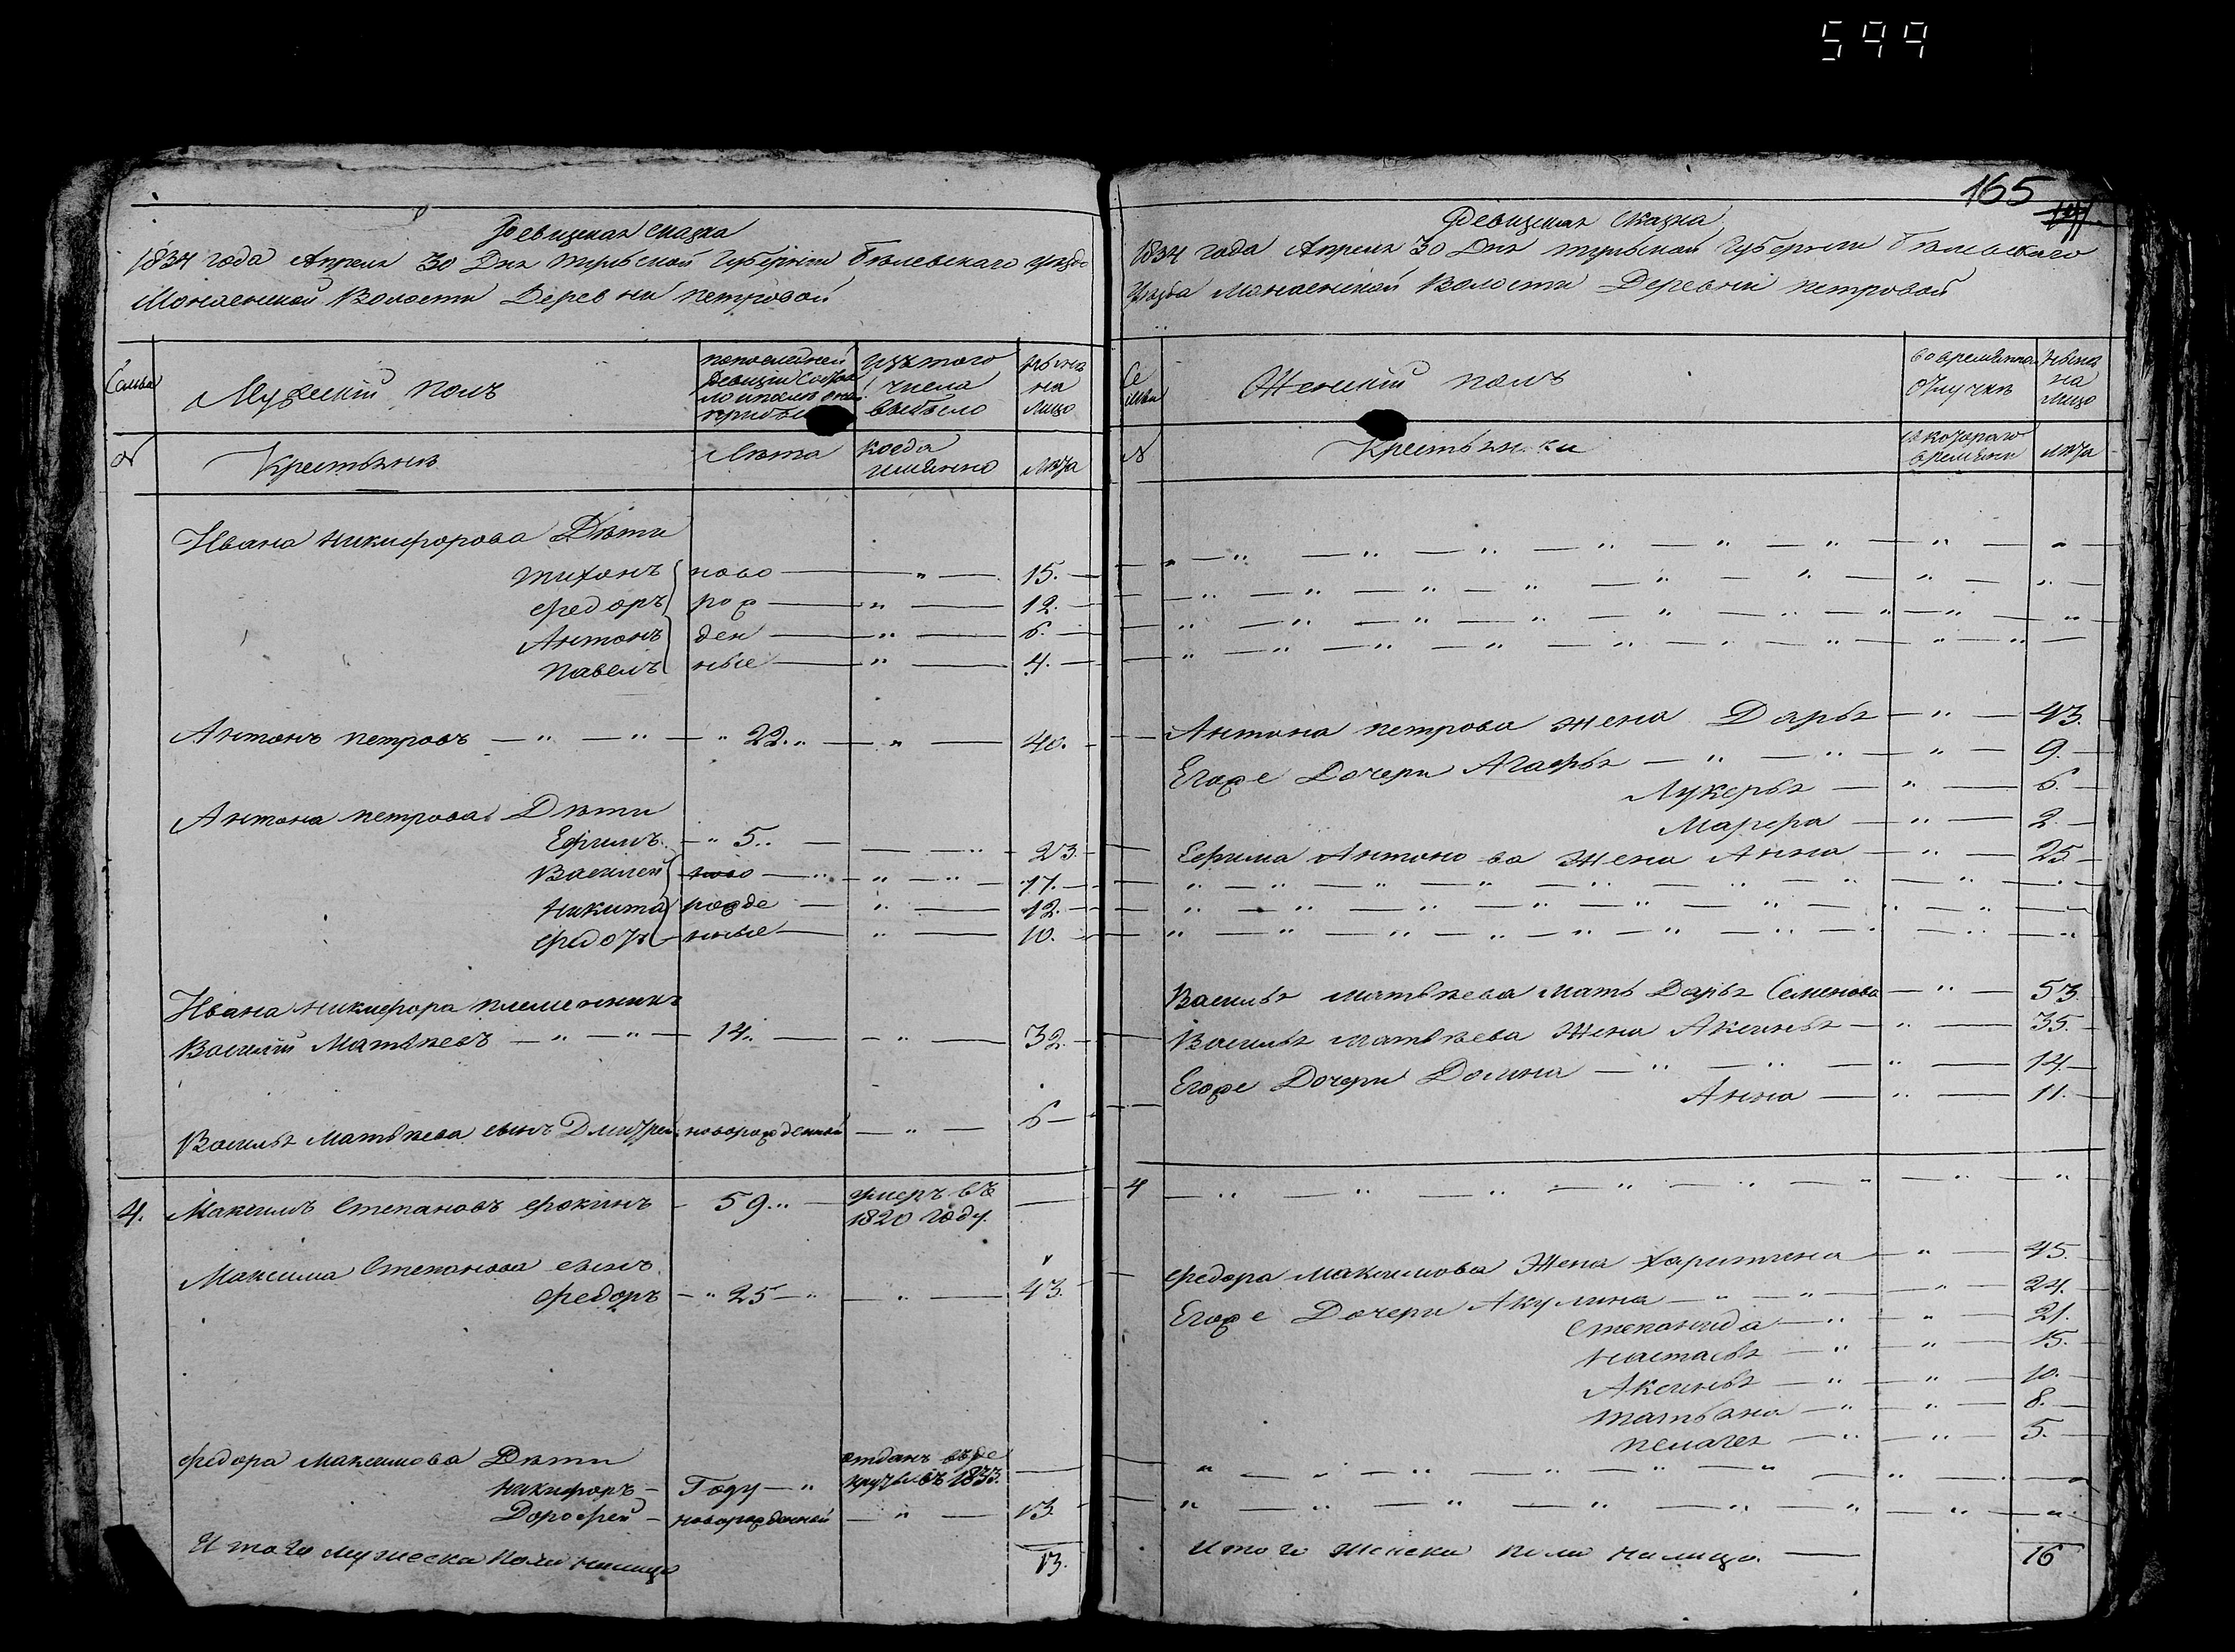 599
Ревизская сказка
1834 года Апреля 30 Дня тульской Губернии Белевскаго уезда
Монаенской Волости Деревни петровой
Семьи
Мужеский полъ
попоследней ревизии состояло ипослъ оной прибыло
изъ того числа выбыло
ныне на лицо
№
Крестьяне
Лета
когда имянно
лета
Ивана никифорова Дети
тихонъ ново — " — 15.
федоръ рож — " — 12.
Антонъ ден — " — 6.
павелъ ные — " — 4.
Антонъ петровъ — " — " — " 22. " — " — 40.
Антона петрова Дети
Ефимъ — " 5 .. — " — 23.
Василей ново — " — " — 17.
никита рожде — " — 12.
федотъ нные — " — 10.
Ивана никифора племенникъ
Василий Матвеевъ — " — " — 14. — " — 32.
Василья Матвеева сынъ Дмитрей новорожденный — " — 6
4. Максимъ Степановъ фокинъ — 59. " — умеръ въ 1820 году. —
Максима Степанова сынъ
федоръ — " 25 — " — " — 43.
федора максимова Дети
никифоръ — Году — " отданъ врекруты въ 1833. —
Дорофей — новорожденный — " — 13.
Итого мужеска пола налицо 13.
165
Ревизская сказка
1834 года Апреля 30 Дня тульской Губернии Белевскаго
Уезда Монаенской Волости Деревни петровой
Семьи
Женский полъ
вовременной отлучке
ныне на лицо
№
Крестьянки
скотораго времяни
лета
Антона петрова жена Дарья — " — 43.
Егоже Дочери Агафья — " — " — " — 9.
Лукерья — " — 6.
Марфа — " — 2.
Ефима Антонова жена Анна — " — 25
Василья матвеева мать Дарья Семенова — " — 53.
Василья матвеева Жена Аксинья — " — 35.
Егоже Дочери Домна — " — " — " — 14.
Анна — " — 11.
4
федора максимова Жена харитина — " — 45.
Егоже Дочери Акулина — " — " — " — 24.
степанида — " — " — 21.
настасья — " — " — 15.
Аксинья — " — " — 10.
татьяна — " — " — 8.
пелагея — " — " — 5.
Итого женска пола налицо. — 16